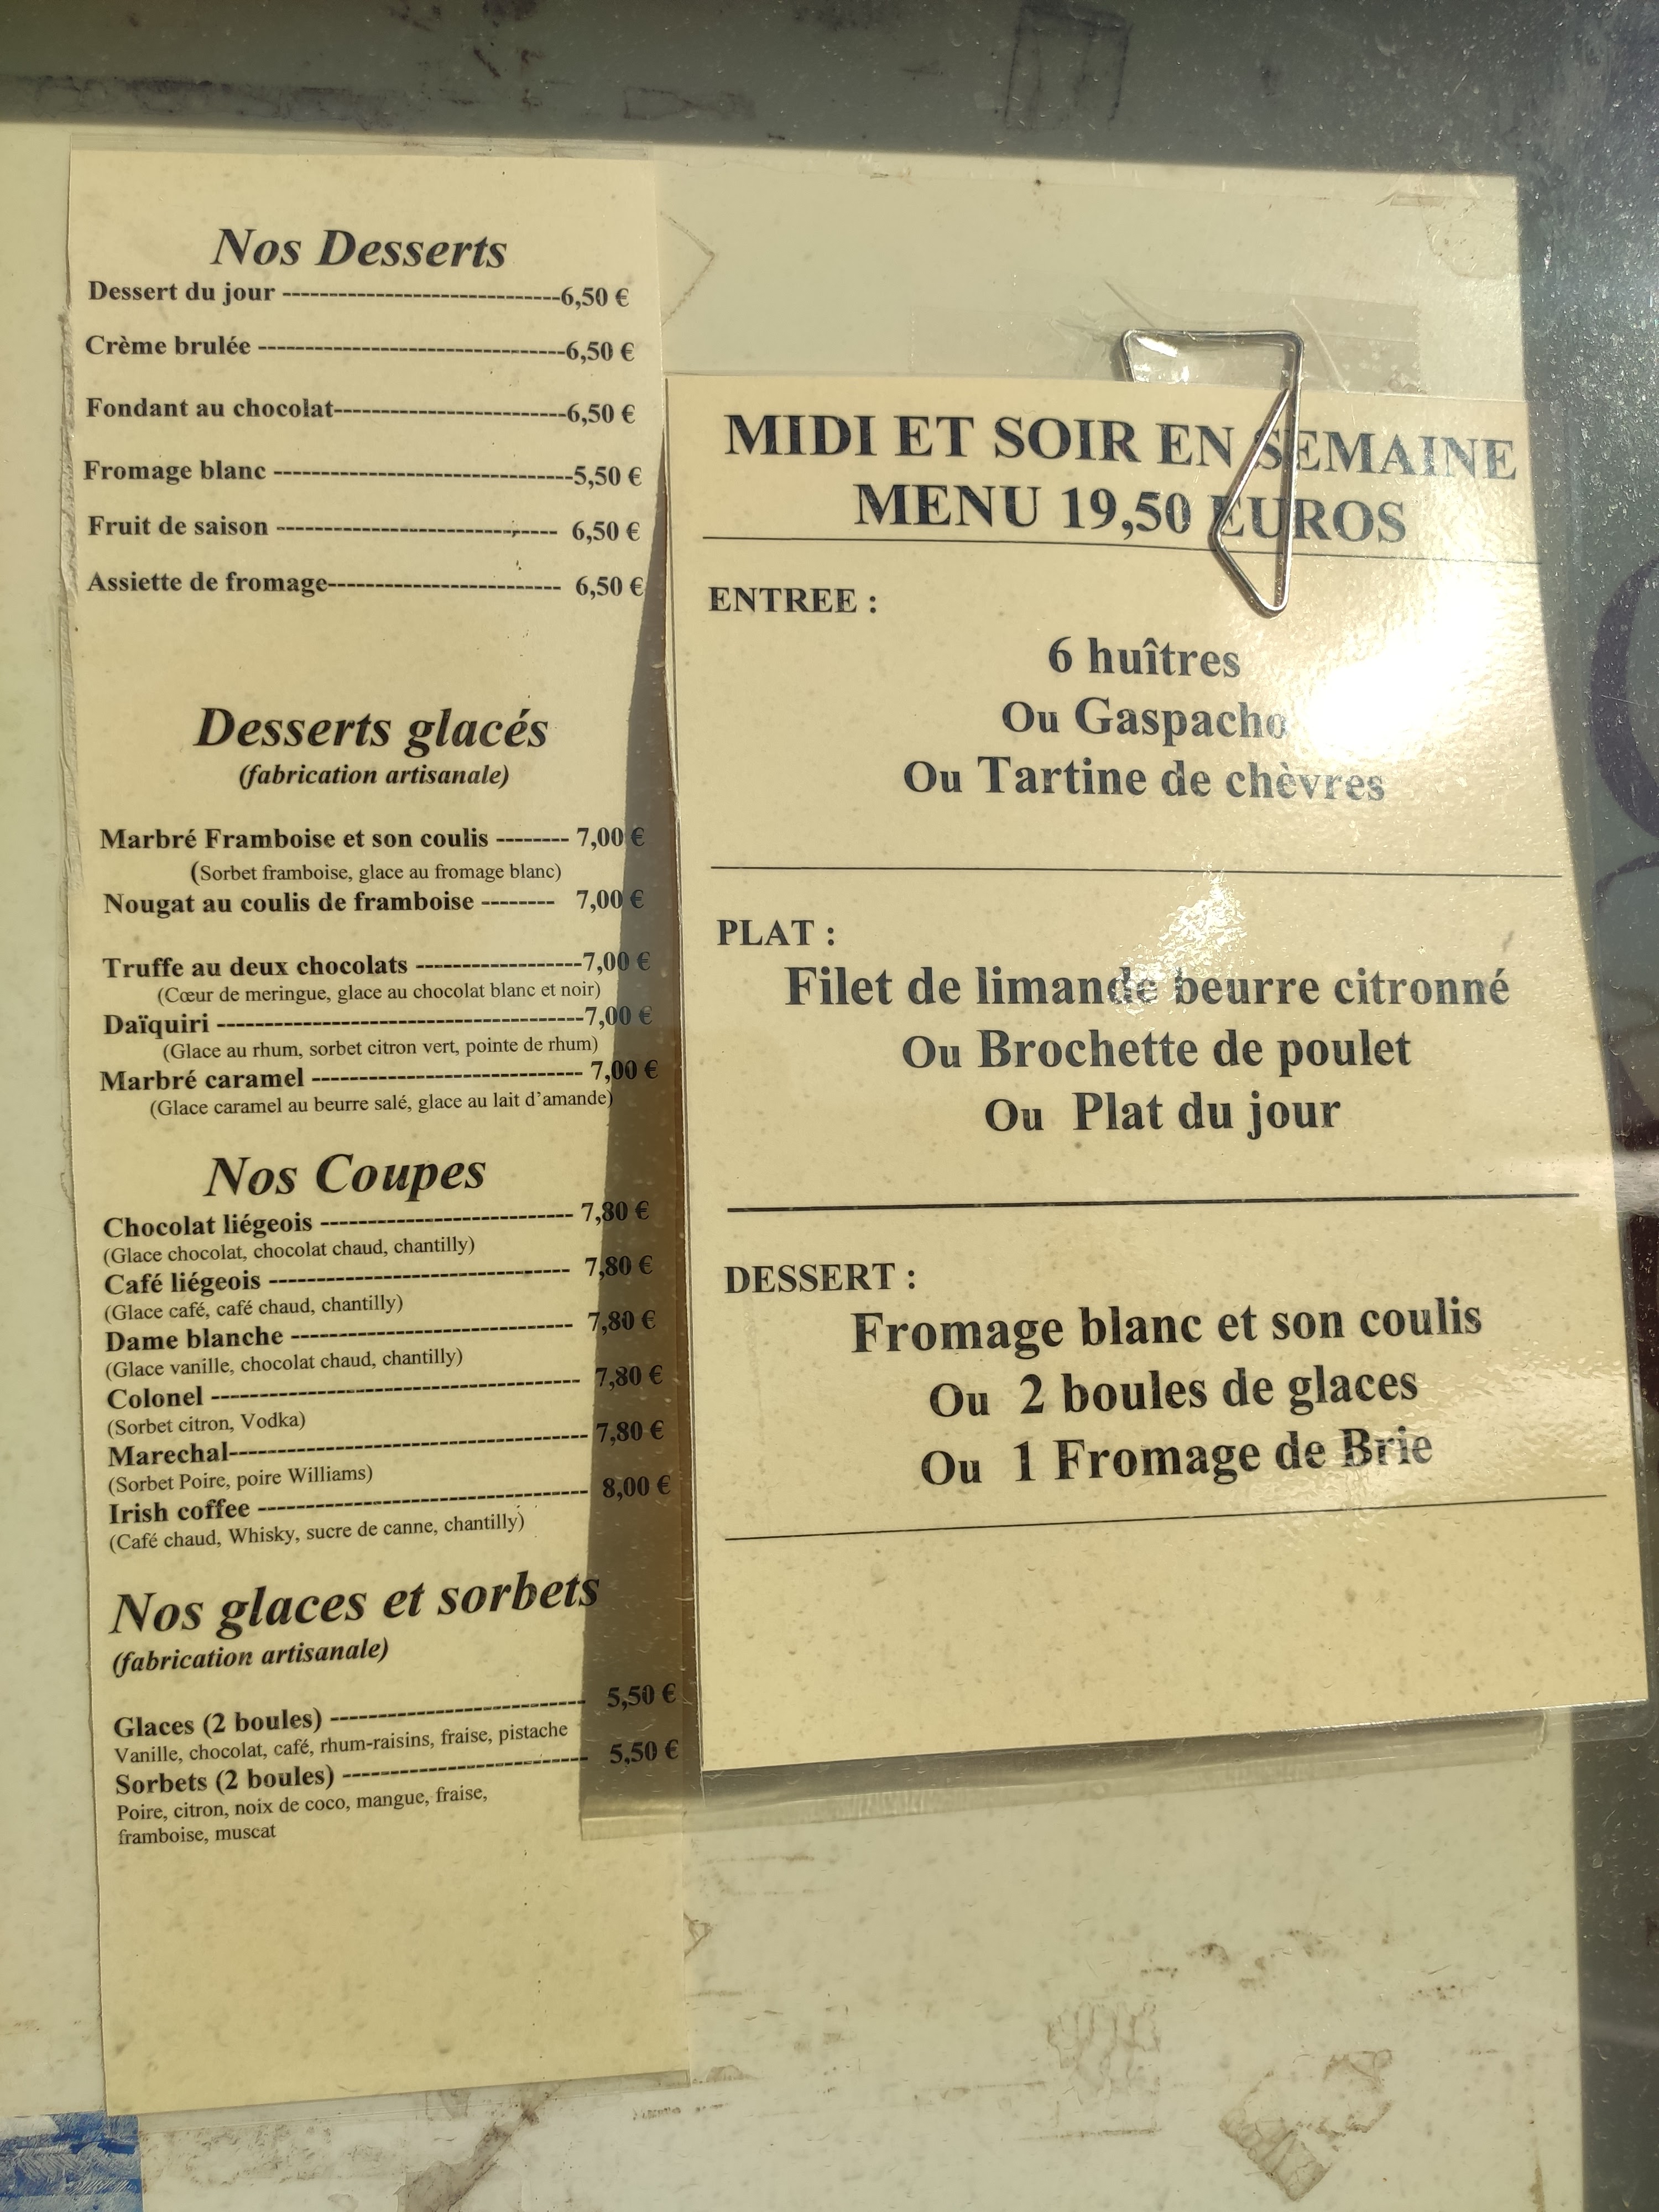 Nos Desserts
Dessert du jour ------------------------------6,50 €
Crème brulée ---------------------------------6,50 €
Fondant au chocolat-------------------------6,50 €
Fromage blanc --------------------------------5,50 €
Fruit de saison ------------------------------ 6,50 €
Assiette de fromage------------------------- 6,50 €
Desserts glacés
(fabrication artisanale)
Marbré Framboise et son coulis -------- 7,00 €
(Sorbet framboise, glace au fromage blanc)
Nougat au coulis de framboise -------- 7,00 €
Truffe au deux chocolats ------------------7,00 €
(Cœur de meringue, glace au chocolat blanc et noir)
Daïquiri ---------------------------------------7,00 €
(Glace au rhum, sorbet citron vert, pointe de rhum)
Marbré caramel ----------------------------- 7,00 €
(Glace caramel au beurre salé, glace au lait d’amande)
Nos Coupes
Chocolat liégeois --------------------------- 7,80 €
(Glace chocolat, chocolat chaud, chantilly)
Café liégeois -------------------------------- 7,80 €
(Glace café, café chaud, chantilly)
Dame blanche ------------------------------ 7,80 €
(Glace vanille, chocolat chaud, chantilly)
Colonel --------------------------------------- 7,80 €
(Sorbet citron, Vodka)
Marechal-------------------------------------- 7,80 €
(Sorbet Poire, poire Williams)
Irish coffee ----------------------------------- 8,00 €
(Café chaud, Whisky, sucre de canne, chantilly)
Nos glaces et sorbets
(fabrication artisanale)
Glaces (2 boules) --------------------------- 5,50 €
Vanille, chocolat, café, rhum-raisins, fraise, pistache
Sorbets (2 boules) -------------------------- 5,50 €
Poire, citron, noix de coco, mangue, fraise,
framboise, muscat
MIDI ET SOIR EN SEMAINE
MENU 19,50 EUROS
ENTREE :
6 huîtres
Ou Gaspacho
Ou Tartine de chèvres
PLAT :
Filet de limande beurre citronné
Ou Brochette de poulet
Ou Plat du jour
DESSERT :
Fromage blanc et son coulis
Ou 2 boules de glaces
Ou 1 Fromage de Brie